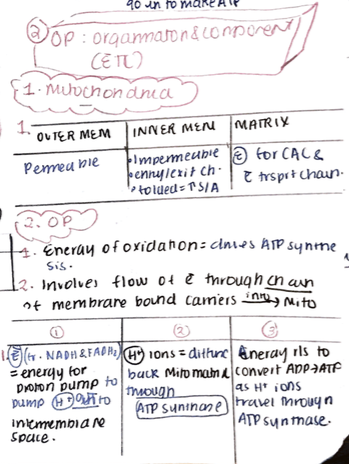 go in to make ATP
② OP : organisation & component
(ETC)
1. Mitochondria
1. OUTER MEM INNER MEM MATRIX
Permeable
• Impermeable
• entry/exit ch.
• folded = ↑ S/A
Ⓔ for CAC &
ē trsprt chain.
2. OP
1. Energy of oxidation = drives ATP synthe
sis.
2. Involves flow of ē through chain
of membrane bound carriers in → Mito
① ② ③
1. ē (fr. NADH & FADH₂)
= energy for
proton pump to
pump H⁺ out to
intermembrane
space.
H⁺ ions = diffuse
back Mito matrix
through
ATP synthase
Energy rls to
convert ADP → ATP
as H⁺ ions
travel through
ATP synthase.